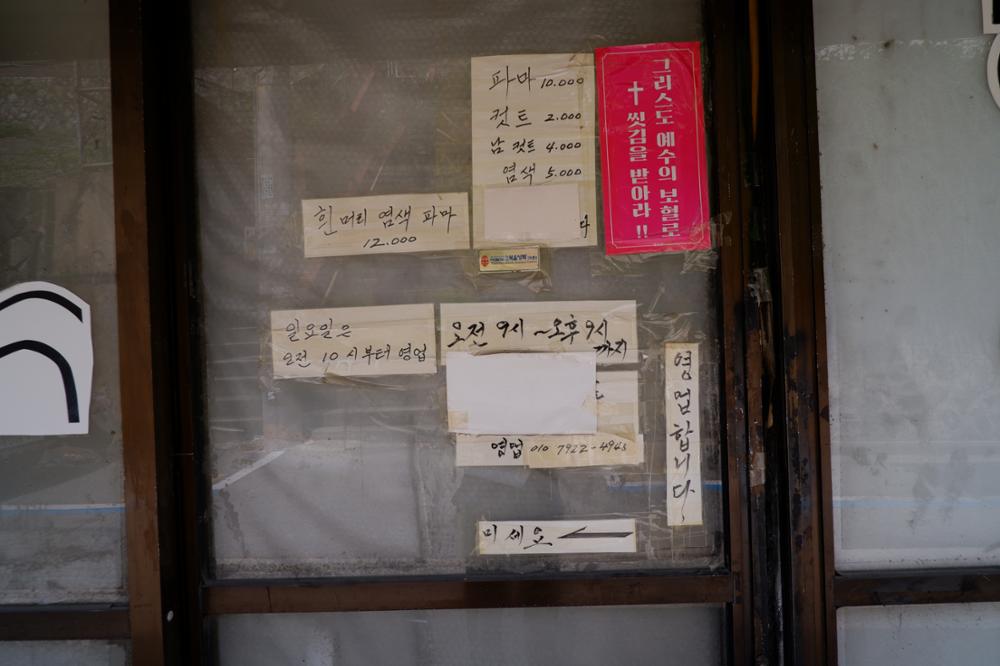 파마 10.000
컷트 2.000
남 컷트 4.000
염색 5.000
다
그리스도 예수의 보혈로
씻김을 받아라 !!
흰머리 염색 파마
12.000
일요일은
오전 10시부터 영업
오전 9시 ~오후 9시
까지
영업 010 7922-4943
영업합니다
미세오